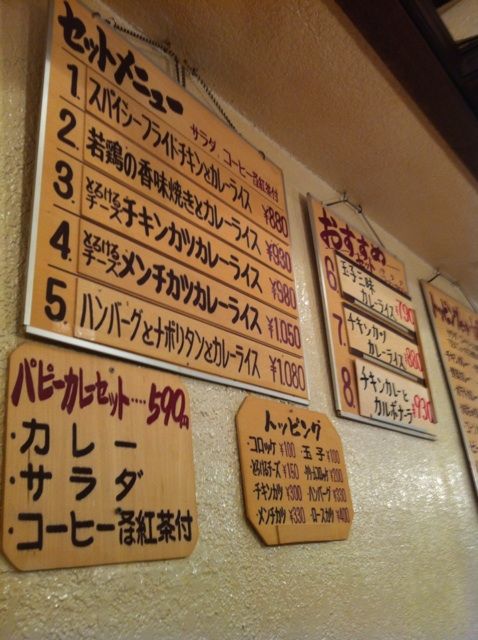 セットメニュー
サラダ、コーヒー又は紅茶付
1 スパイシーフライドチキンとカレーライス ¥880
2. 若鶏の香味焼きとカレーライス ¥930
3. とろけるチーズチキンカツカレーライス ¥980
4. とろけるチーズメンチカツカレーライス ¥1.050
5 ハンバーグとナポリタンとカレーライス ¥1.080
おすすめ
6 玉子三昧カレーライス ¥790
7. チキンカツカレーライス ¥880
8. チキンカレーとカルボナーラ ¥930
パピーカレーセット‥‥590円
・カレー
・サラダ
・コーヒー又は紅茶付
トッピング
・コロッケ ¥100 玉子 ¥100
・とろけるチーズ ¥150
・チキンカツ ¥300 ・ハンバーグ ¥330
・メンチカツ ¥330 ・ロースカツ ¥400